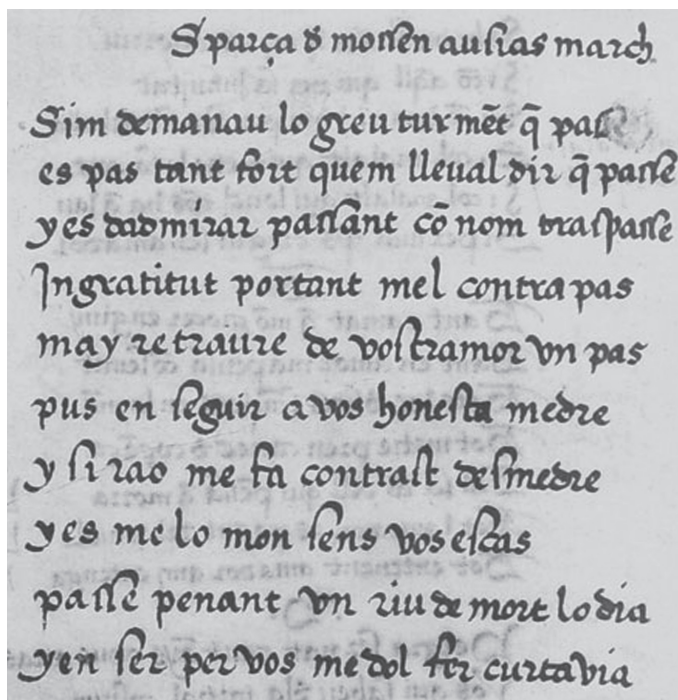 Sparça đ mossen ausias march
Sim demanau lo greu turmẽt q̃ pas
es pas tant fort quem lleual dir q̃ passe
yes dadmirar passant cõ nom traspasse
Ingratitut portant mel contrapas
may retraure de vostramor vn pas
pus en seguir a vos honesta medre
y si rao me fa contrast desmedre
yes me lo mon sens vos escas
passe penant vn riu de mort lo dia
yen ser per vos me dol fer curta via